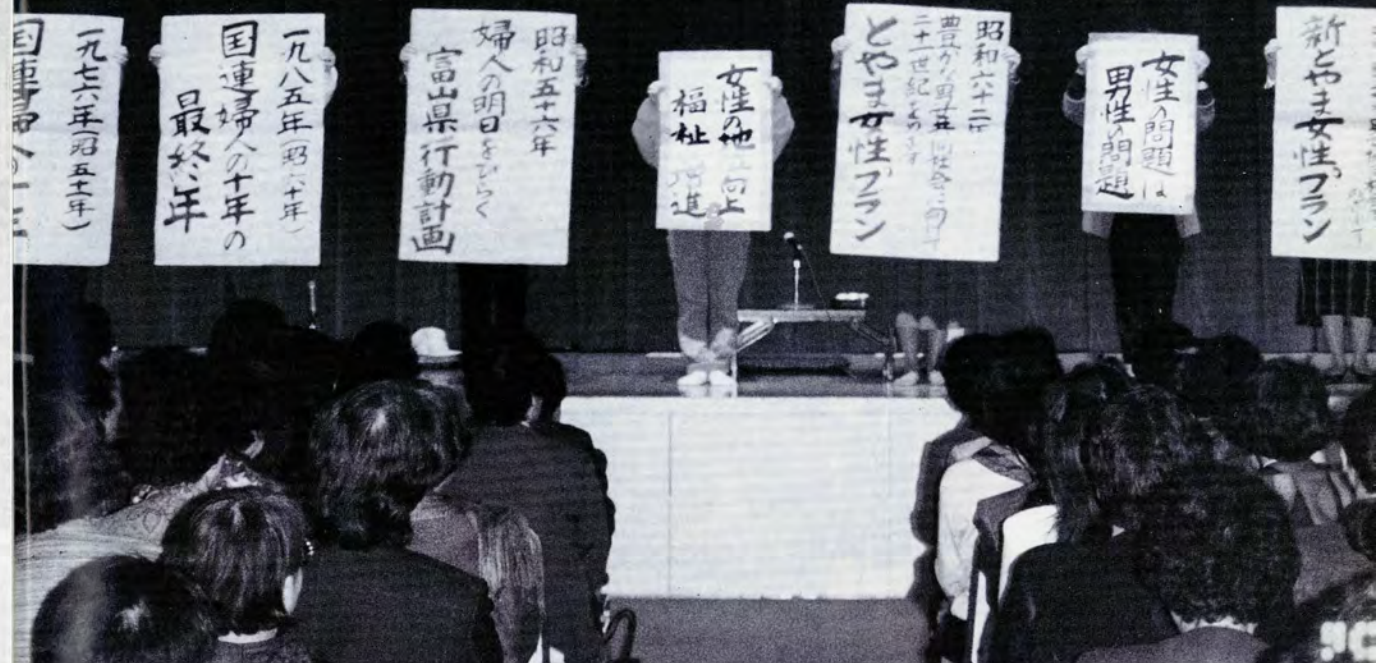 一九七六年(昭五十一年)
一九八五年(昭六十年)
国連婦人の十年の
最終年
昭和五十六年
婦人の明日をひらく
富山県行動計画
女性の地位向上
福祉増進
昭和六十二年
豊かな男女共同社会に向けて
二十一世紀をめざす
とやま女性プラン
女性の問題は
男性の問題
新とやま女性プラン